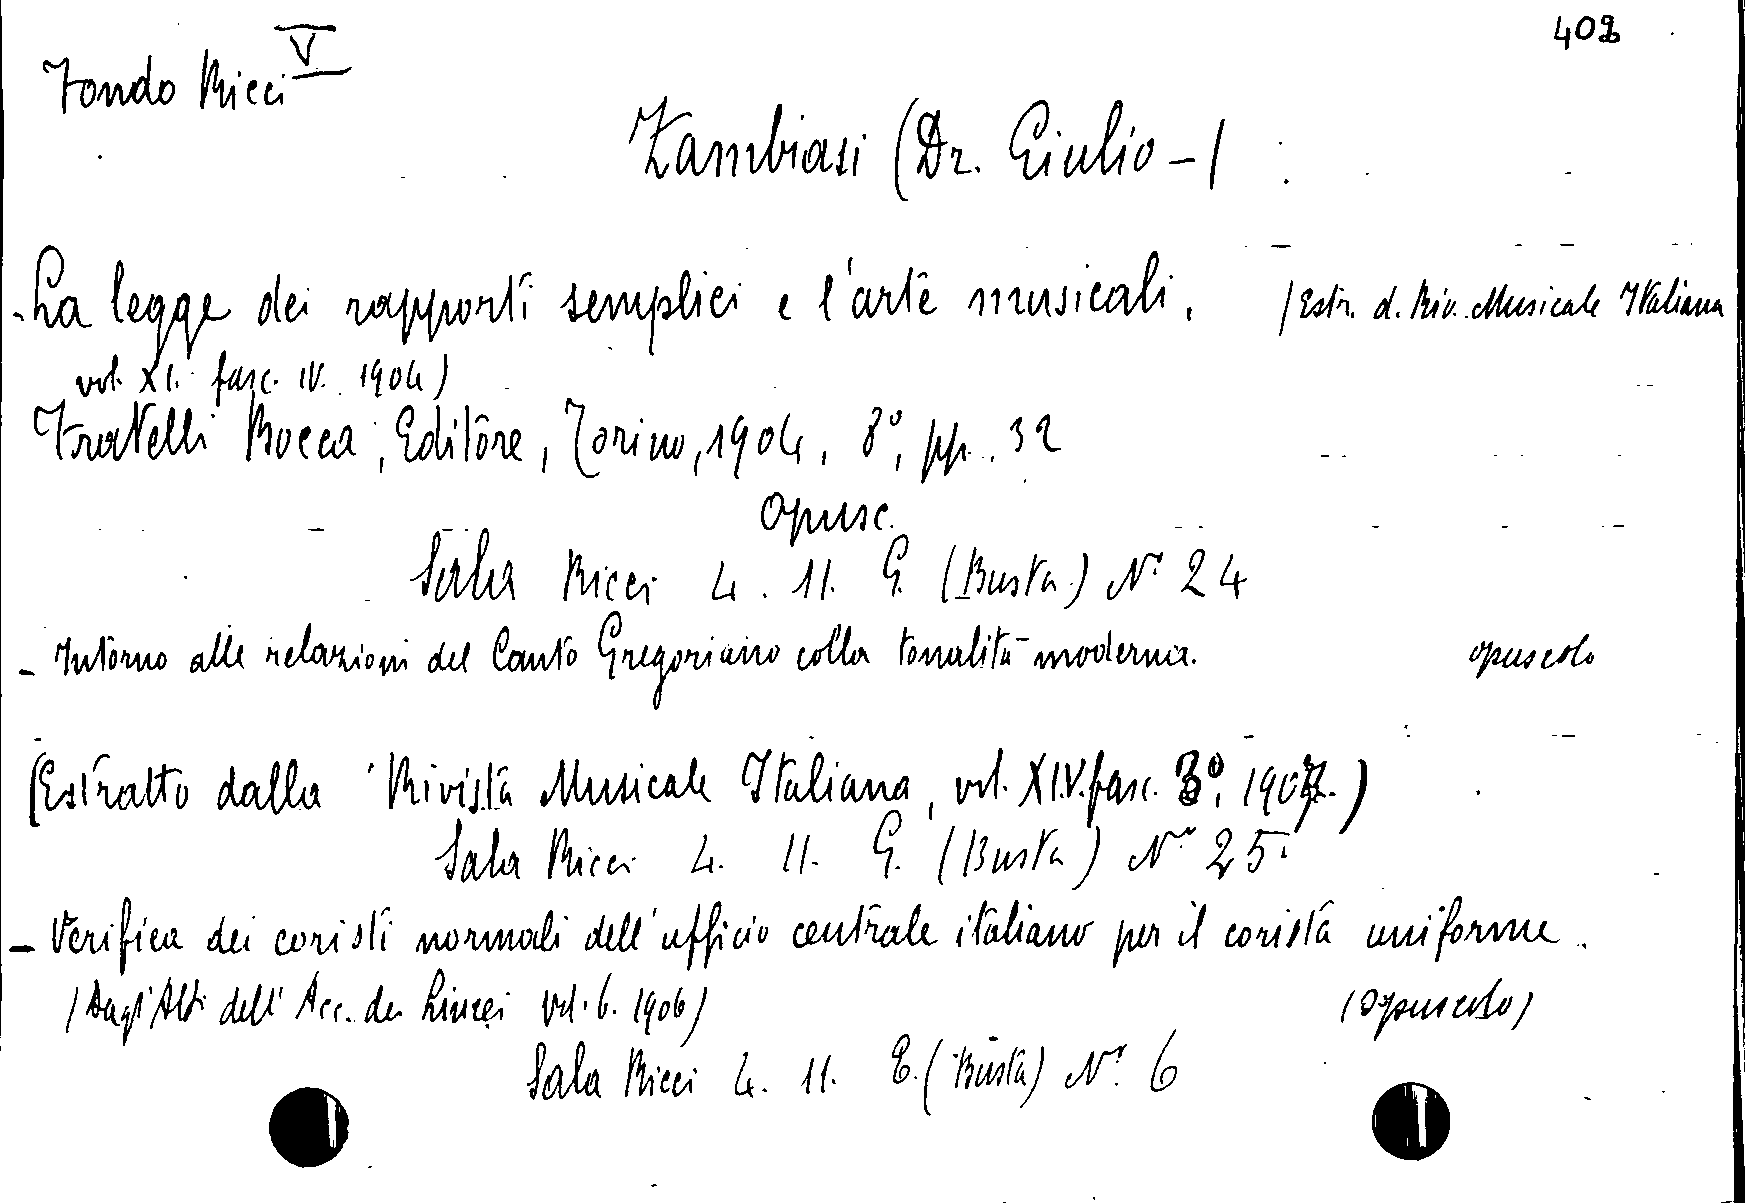 402
Fondo Ricci V
Zambiasi (Dr. Giulio -)
- La legge dei rapporti semplici e l'arte musicali. (Estr. d. Riv. Musicale Italiana
vol. XI. fasc. IV. 1904)
Fratelli Bocca, Editore, Torino, 1904, 8°, pp. 32
opusc.
Sala Ricci 4. 11. G. (Busta) N° 24
- Intorno alle relazioni del Canto Gregoriano colla tonalità moderna. opuscolo
(Estratto dalla Rivista Musicale Italiana, vol. XIV. fasc. 3°, 1907.)
Sala Ricci 4. 11. G. (Busta) N° 25.
- Verifica dei coristi normali dell'ufficio centrale italiano per il corista uniforme.
(Dagl'Atti dell'Acc. dei Lincei vol. 6. 1906) (opuscolo)
Sala Ricci 4. 11. E. (Busta) N° 6